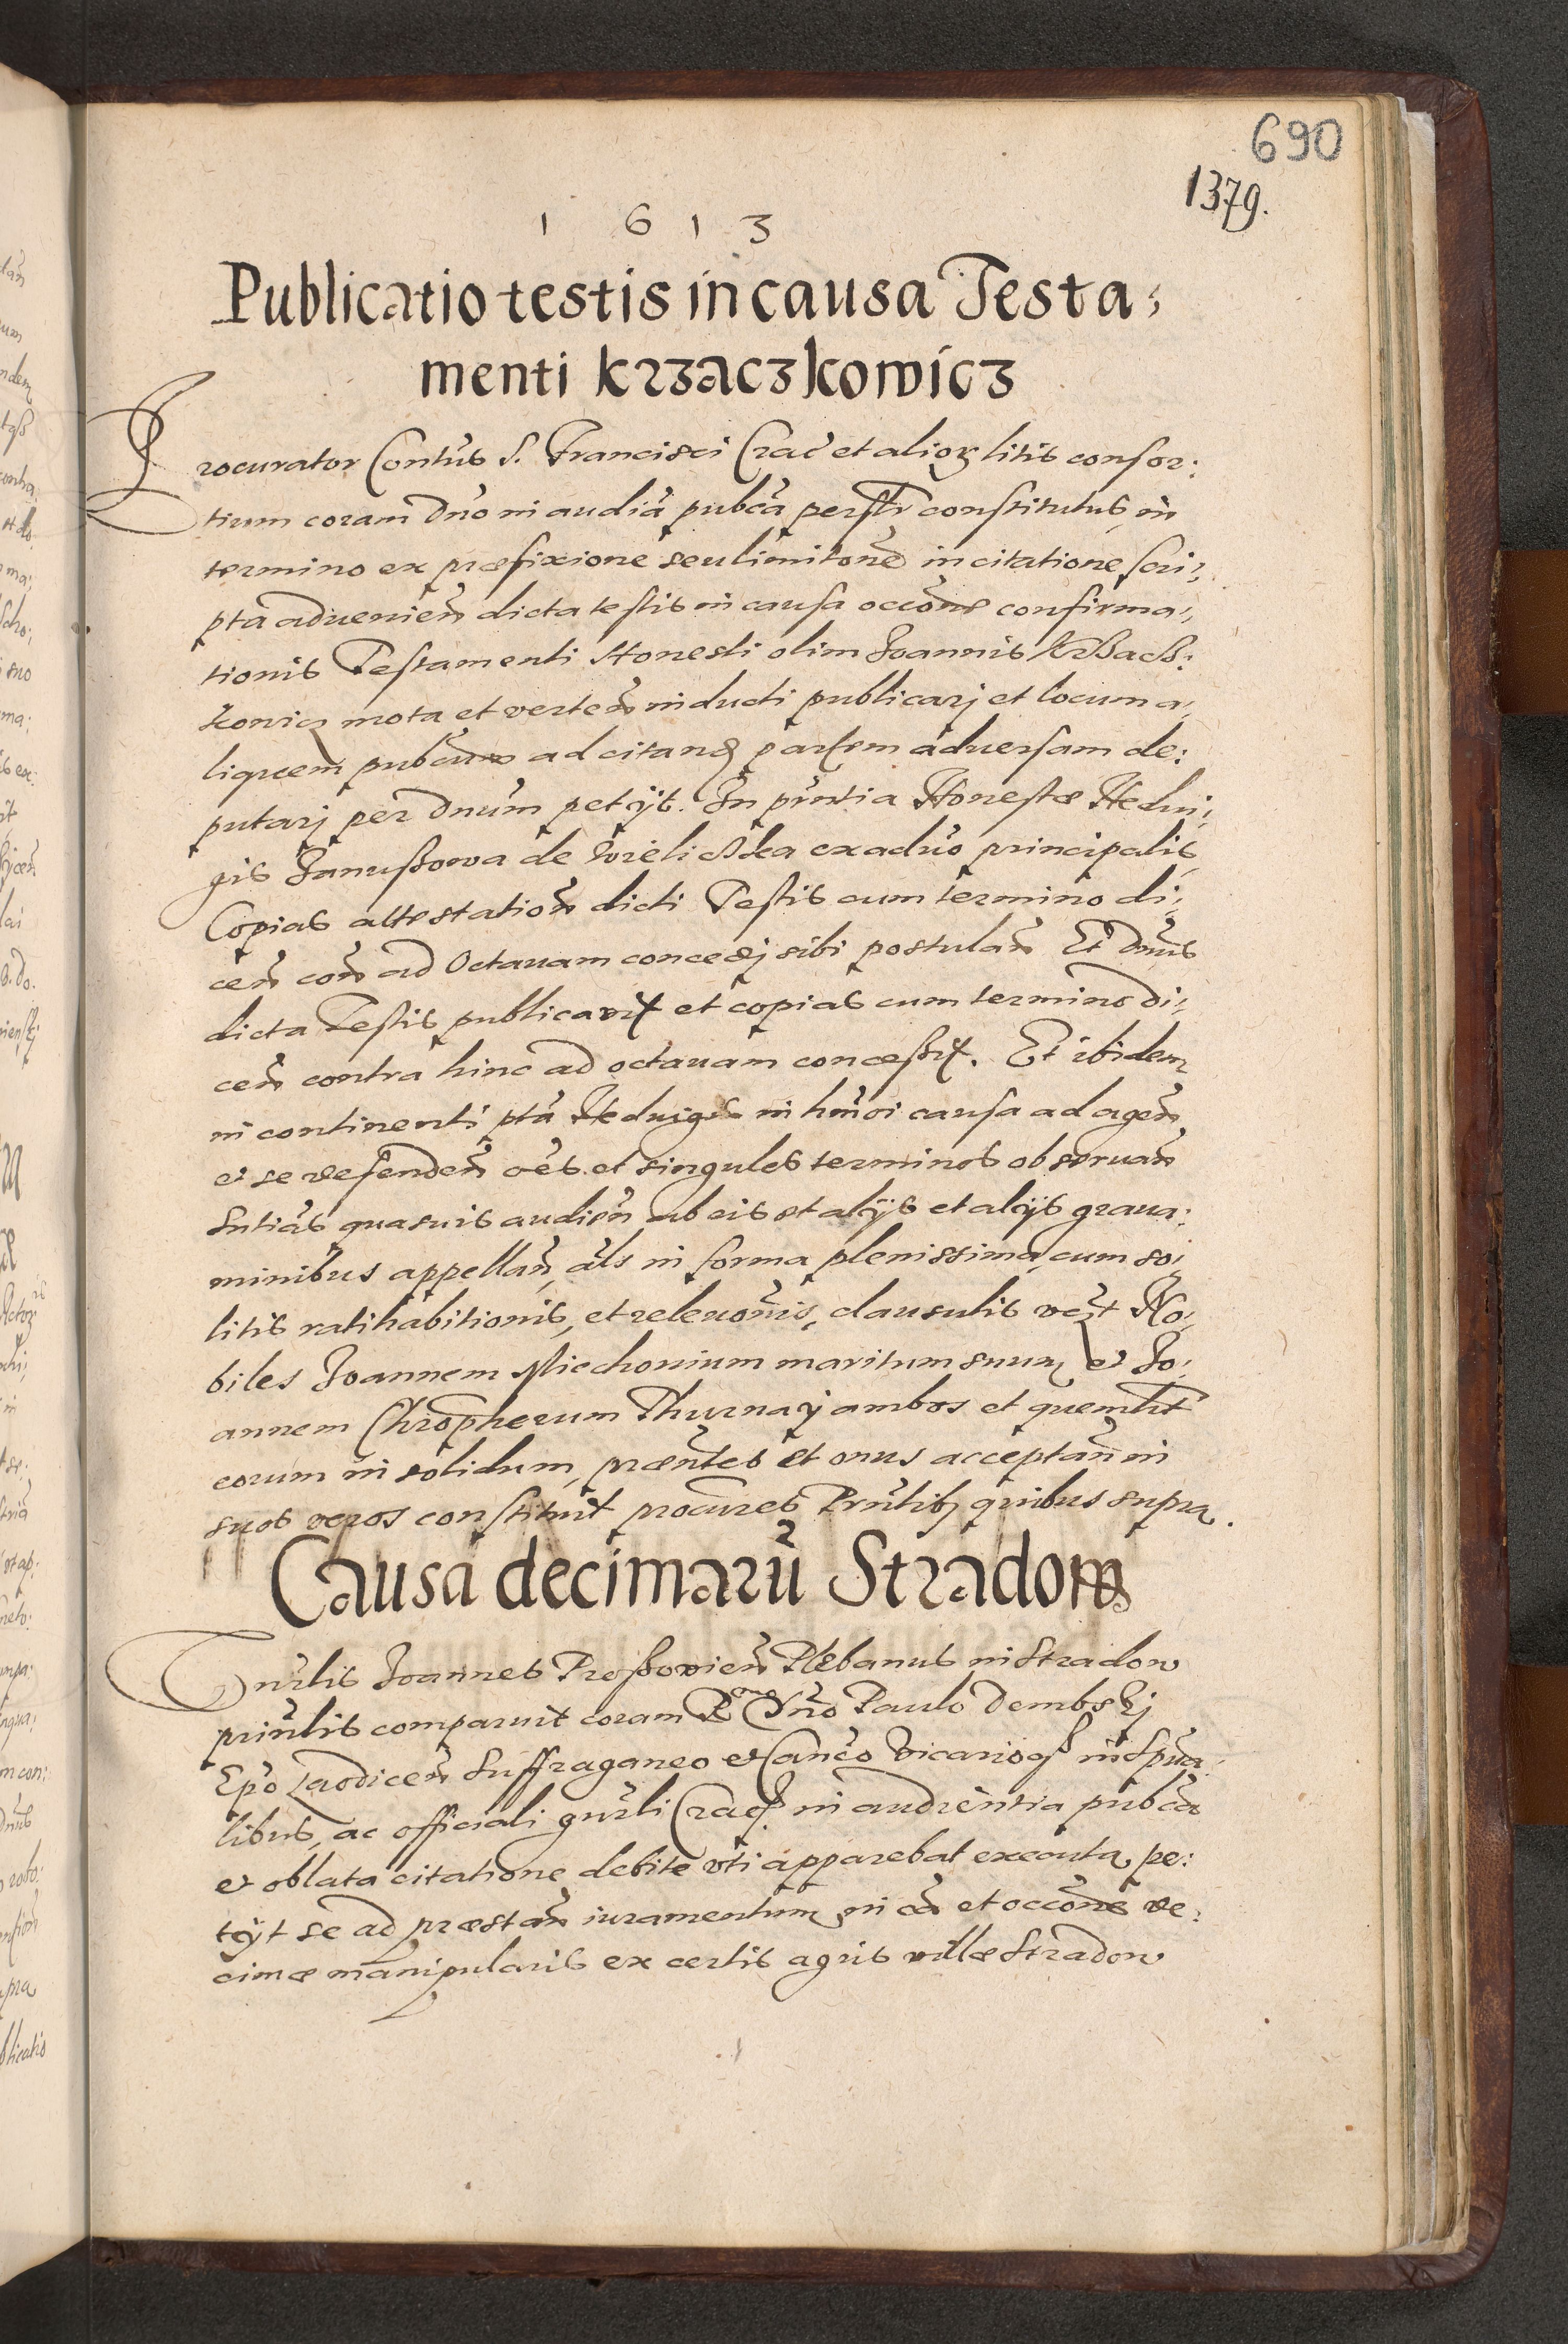 690
1379.
1 6 1 3
Publicatio testis in causa Testa;
menti Krzaczkowicz
Procurator Contus S. Francisci Crac et alioꝝ litis consor:
tium coram Dno in audia pubca constitutus, in
termino ex præfixione seu limitone in citatione scri;
pta aduenien dicta testis in causa occone confirma;
tionis Testamenti Honesti olim Joannis Krzacz:
kowicz mota et verten inducti publicarj et locum a;
liquem pubcum ad citand partem aduersam de:
putarj per Dnum petÿt. In pntia Honestæ Hedui;
gis Janussowa de Wieliczka ex aduo principalis
Copias attestation dicti Testis cum termino di;
cen con ad Octauam concedj sibi postulan Et Dnus
dicta Testis publicauit et copias cum termino di;
cen contra hinc ad octauam concessit. Et ibidem
in continenti pta Heduigis in hmoi causa ad agen
et se defenden oes et singulos terminos obseruan
Sntias quasuis audien ab eis et alÿs et alÿs graua:
minibus appellan, als in forma plenissima, cum so;
litis ratihabitionis, et releuonis, clausulis vczt No;
biles Joannem Miechouium maritum suum et Jo;
annem Chropherum Thurnaÿ ambos et quemlt
eorum in solidum, præntes et onus acceptan in
suos veros constituit procures Prntibꝫ quibus supra.
Causa decimarū Stradom
Vnrlis Joannes Prossouien Plebanus in Stradow
prinlis comparuit coram Rmo Dno Paulo Dembskj
Epo Laodicen Suffraganeo et Canco Vicarioqꝫ in Spua
libus, ac officiali gnrli Crac in audientia pubca
et oblata citatione debite vti apparebat executa, pe:
tÿt se ad præstan iuramentum in ca et occone de:
cimæ manipularis ex certis agris villæ Stradow